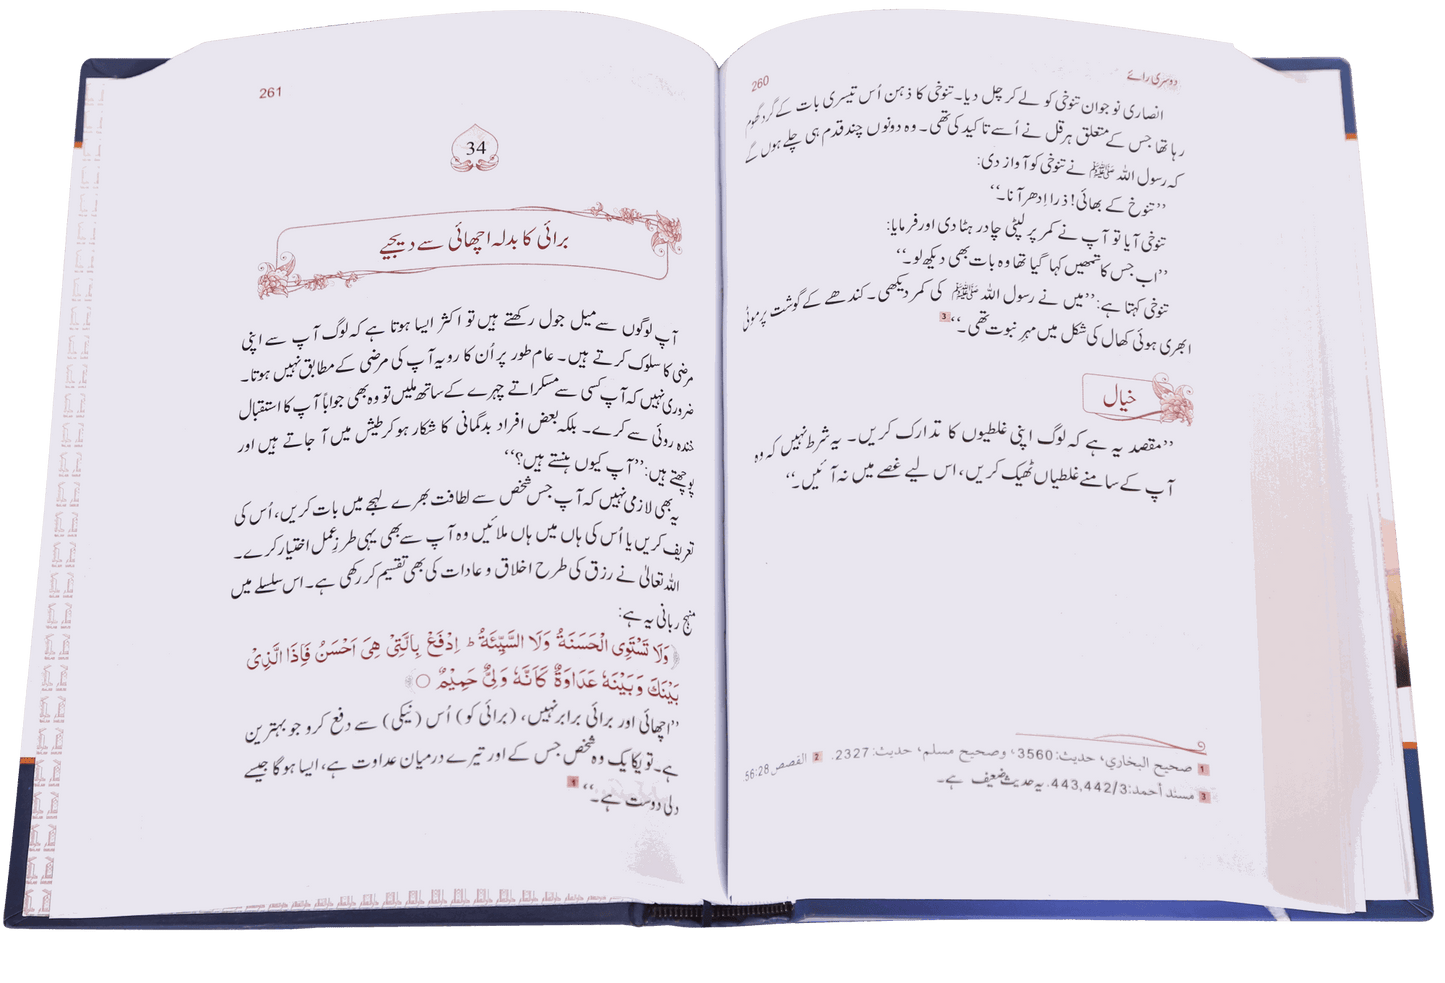 دوسری رائے
260
انصاری نوجوان تنوخی کو لے کر چل دیا۔ تنوخی کا ذہن اُس تیسری بات کے گرد گھوم
رہا تھا جس کے متعلق ہرقل نے اُسے تاکید کی تھی۔ وہ دونوں چند قدم ہی چلے ہوں گے
کہ رسول اللہ ﷺ نے تنوخی کو آواز دی:
’’تنوخ کے بھائی! ذرا اِدھر آنا۔‘‘
تنوخی آیا تو آپ نے کمر پر لپٹی چادر ہٹا دی اور فرمایا:
’’اب جس کا تمھیں کہا گیا تھا وہ بات بھی دیکھ لو۔‘‘
تنوخی کہتا ہے: ’’میں نے رسول اللہ ﷺ کی کمر دیکھی۔ کندھے کے گوشت پر موٹی
ابھری ہوئی کھال کی شکل میں مہرِ نبوت تھی۔‘‘ 3
خیال
’’مقصد یہ ہے کہ لوگ اپنی غلطیوں کا تدارک کریں۔ یہ شرط نہیں کہ وہ
آپ کے سامنے غلطیاں ٹھیک کریں، اس لیے غصے میں نہ آئیں۔‘‘
1 صحيح البخاري، حديث: 3560، وصحيح مسلم، حديث: 2327. 2 القصص 56:28
3 مسند أحمد: 443,442/3. یہ حدیث ضعیف ہے۔
261
34
برائی کا بدلہ اچھائی سے دیجیے
آپ لوگوں سے میل جول رکھتے ہیں تو اکثر ایسا ہوتا ہے کہ لوگ آپ سے اپنی
مرضی کا سلوک کرتے ہیں۔ عام طور پر اُن کا رویہ آپ کی مرضی کے مطابق نہیں ہوتا۔
ضروری نہیں کہ آپ کسی سے مسکراتے چہرے کے ساتھ ملیں تو وہ بھی جواباً آپ کا استقبال
خندہ روئی سے کرے۔ بلکہ بعض افراد بدگمانی کا شکار ہو کر طیش میں آ جاتے ہیں اور
پوچھتے ہیں: ’’آپ کیوں ہنستے ہیں؟‘‘
یہ بھی لازمی نہیں کہ آپ جس شخص سے لطافت بھرے لہجے میں بات کریں، اُس کی
تعریف کریں یا اُس کی ہاں میں ہاں ملائیں وہ آپ سے بھی یہی طرزِ عمل اختیار کرے۔
اللہ تعالیٰ نے رزق کی طرح اخلاق و عادات کی بھی تقسیم کر رکھی ہے۔ اس سلسلے میں
منہج ربانی یہ ہے:
﴿وَلَا تَسْتَوِى الْحَسَنَةُ وَلَا السَّيِّئَةُ ط اِدْفَعْ بِالَّتِىْ هِىَ اَحْسَنُ فَاِذَا الَّذِىْ
بَيْنَكَ وَبَيْنَهٗ عَدَاوَةٌ كَاَنَّهٗ وَلِىٌّ حَمِيْمٌ ○﴾
’’اچھائی اور برائی برابر نہیں، (برائی کو) اُس (نیکی) سے دفع کرو جو بہترین
ہے۔ تو یکایک وہ شخص جس کے اور تیرے درمیان عداوت ہے، ایسا ہو گا جیسے
دلی دوست ہے۔‘‘ 1